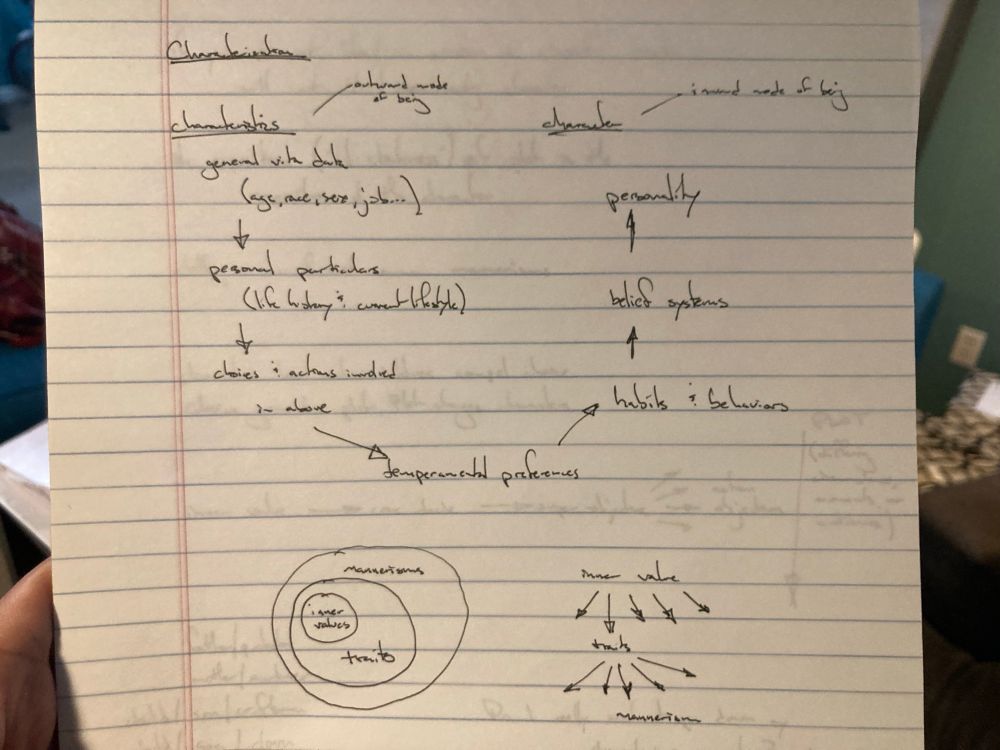 Characterization
outward mode
of being
inward mode of being
characteristics
character
general vita data
(age, race, sex, job...)
personality
personal particulars
(life history & current lifestyle)
belief systems
choices & actions involved
in above
habits & behaviors
temperamental preferences
mannerisms
inner
values
traits
inner value
traits
mannerism